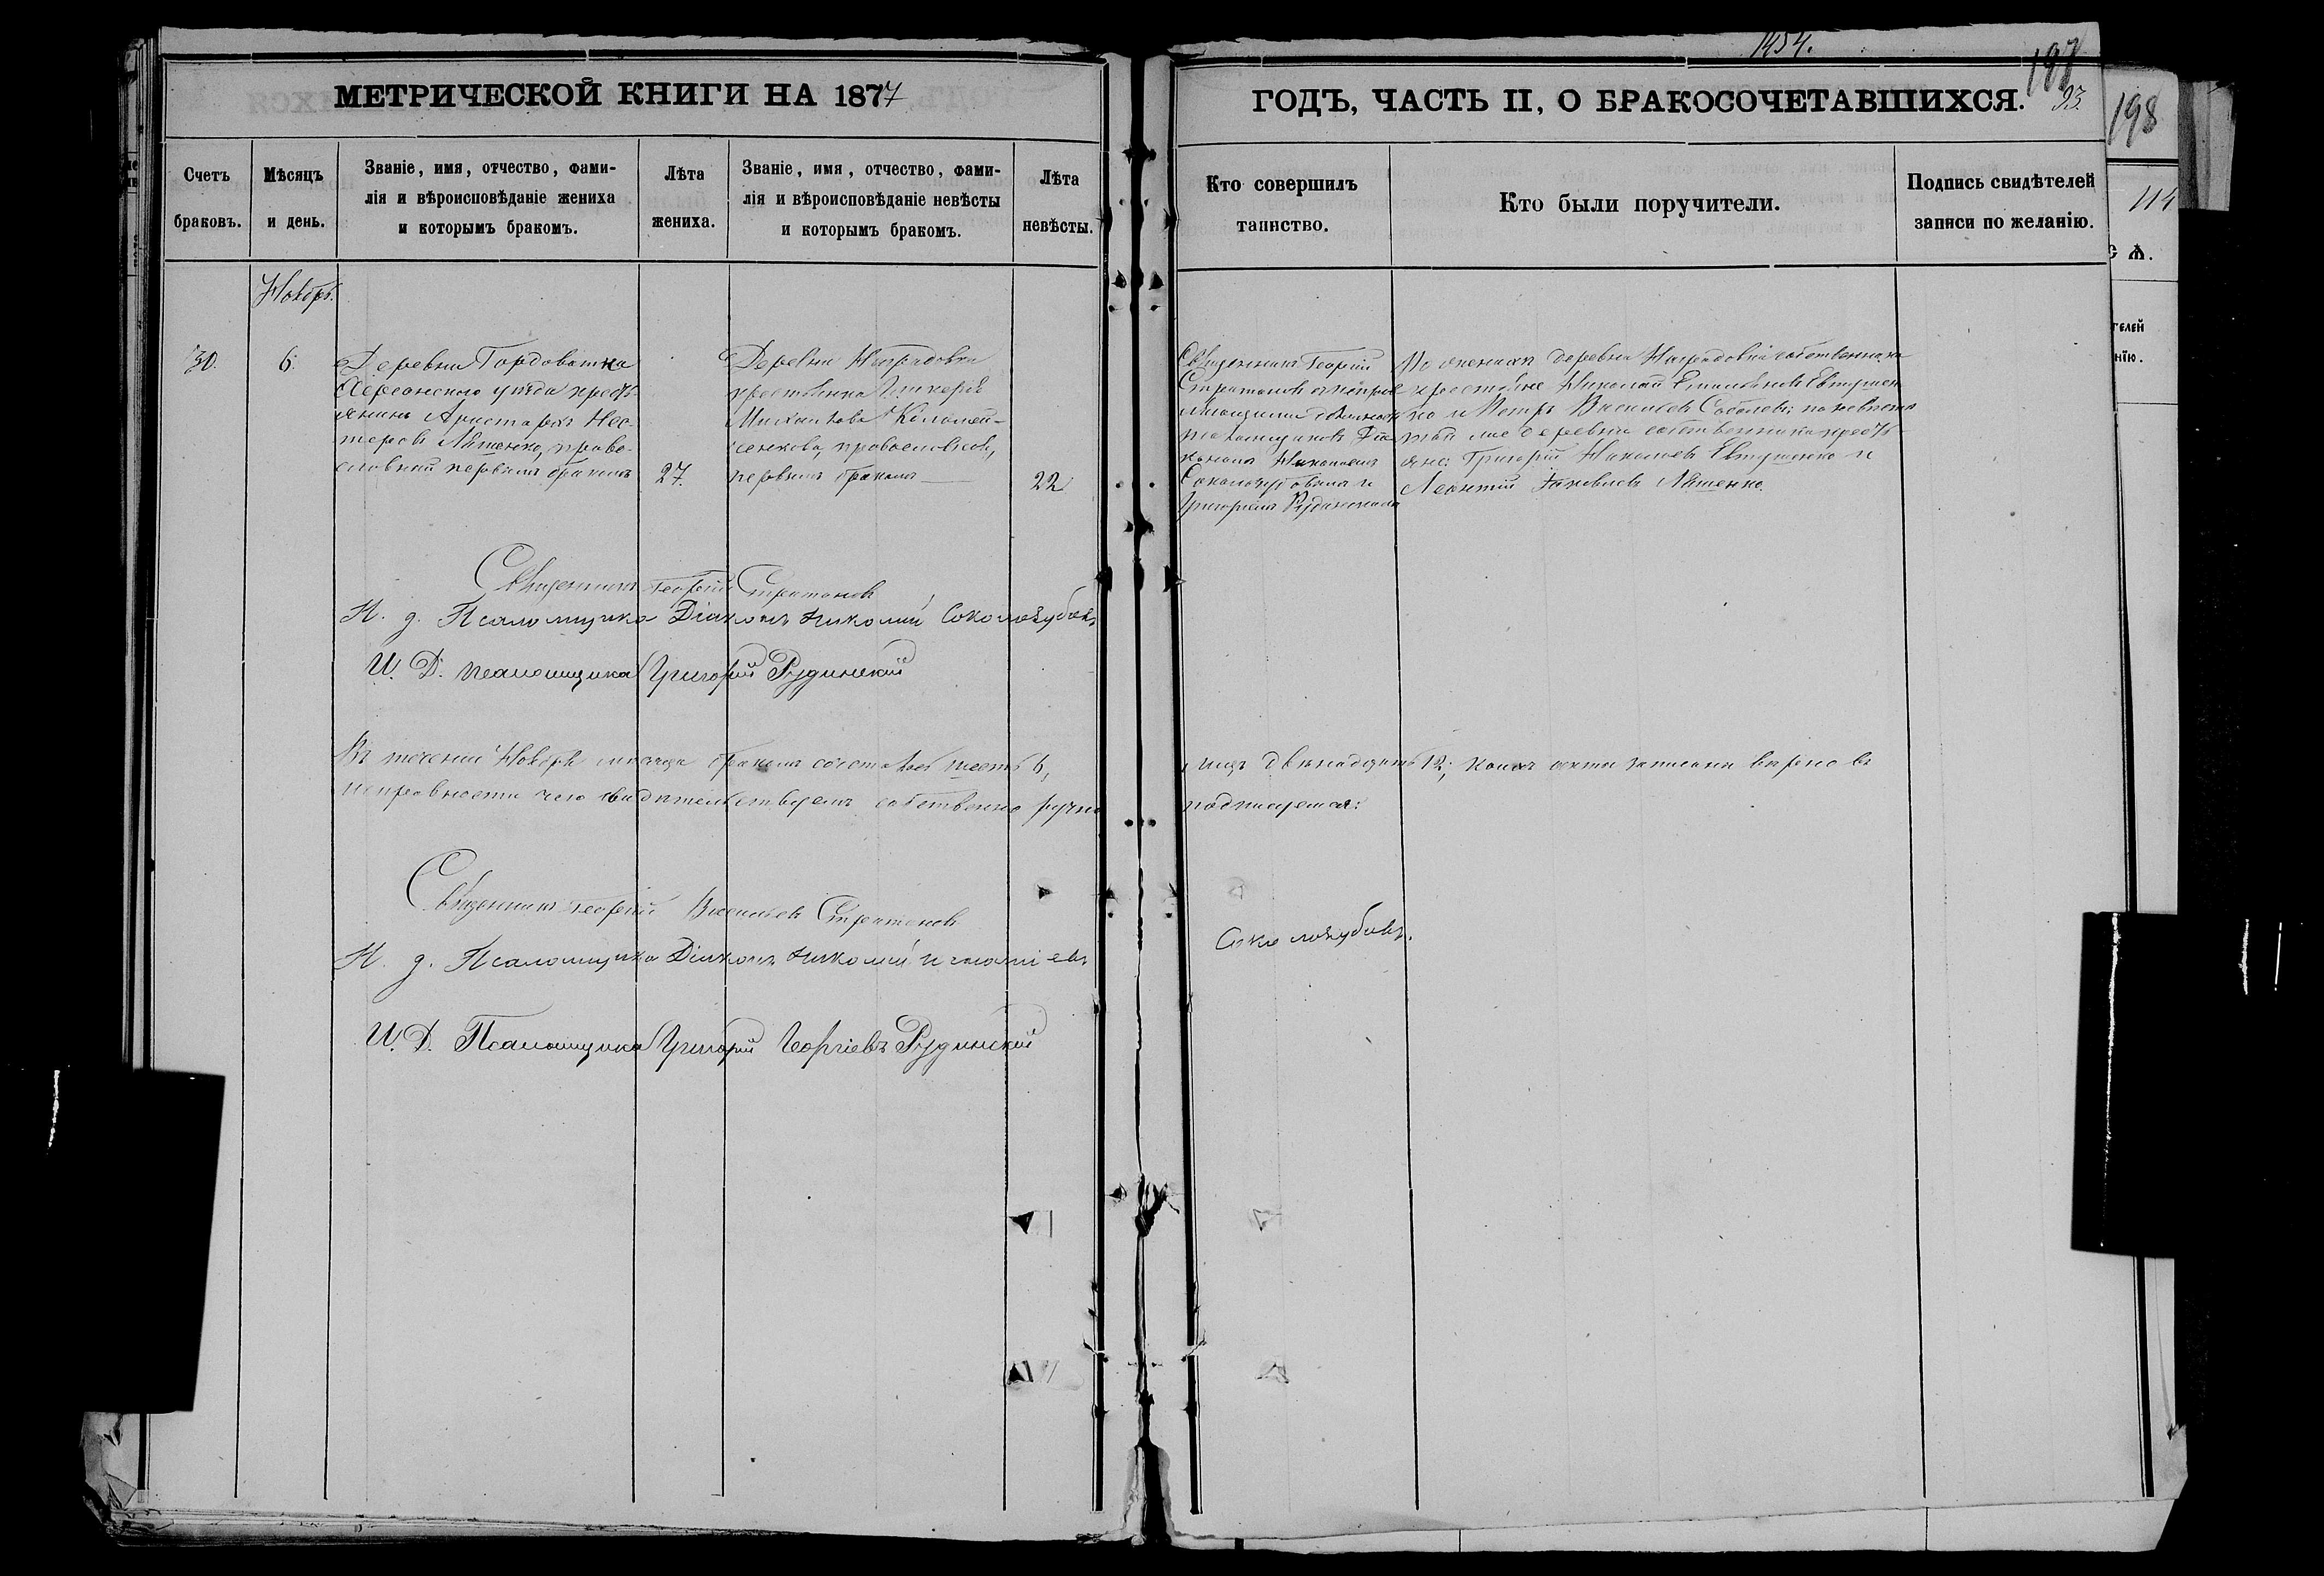 1454.
197
93.
198
114
МЕТРИЧЕСКОЙ КНИГИ НА 1877
ГОДЪ, ЧАСТЬ II, О БРАКОСОЧЕТАВШИХСЯ.
Счетъ
браковъ.
Мѣсяцъ
и день.
Званіе, имя, отчество, фами-
лія и вѣроисповѣданіе жениха
и которымъ бракомъ.
Лѣта
жениха.
Званіе, имя, отчество, фами-
лія и вѣроисповѣданіе невѣсты
и которымъ бракомъ.
Лѣта
невѣсты.
Кто совершилъ
таинство.
Кто были поручители.
Подпись свидѣтелей
записи по желанію.
Ноябрь.
30.
6.
Деревни Гордоватка
Херсонскаго уѣзда кресть-
янинъ Аристархъ Нес-
теровъ Ляшенко, право-
славный первымъ бракомъ
27.
Деревни
крестьянка
Михайлова Коломей-
ченкова, православная,
первымъ бракомъ
22
Священникъ Георгій
Стратоновъ
Діа-
кономъ Николаемъ
Соколозубовымъ и
Григоріемъ Рудинскимъ
По женихѣ деревни собственники
крестьяне Николай Емельяновъ Евтушен-
ко и Петръ Васильевъ Соболевъ; по невѣстѣ
той же деревни собственники кресть-
яне: Григорій Николаевъ Евтушенко и
Леонтій Яковлевъ Ляшенко.
Священникъ Георгій Стратоновъ
И. д. Псаломщика Діаконъ Николай Соколозубовъ
И. Д. псаломщика Григорій Рудинскій
Въ теченіи Ноября мѣсяца браковъ состоялось шесть 6, лицъ двѣнадцать 12; коихъ акты записаны вѣрно въ
исправности чего свидѣтельствуемъ собственно ручно подписуемся:
Священникъ Георгій Васильевъ Стратоновъ
И. д. Псаломщика Діаконъ Николай Игнатіевъ Соколозубовъ.
И. Д. Псаломщика Григорій Георгіевъ Рудинскій